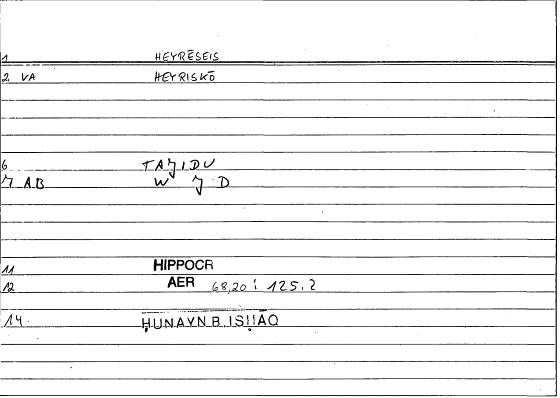 1 HEYRĒSEIS
2 VA HEYRISKŌ
6 TAJIDU
7 AB W J D
11 HIPPOCR
12 AER 68,20 : 125.2
14. ḤUNAYN B. ISḤĀQ